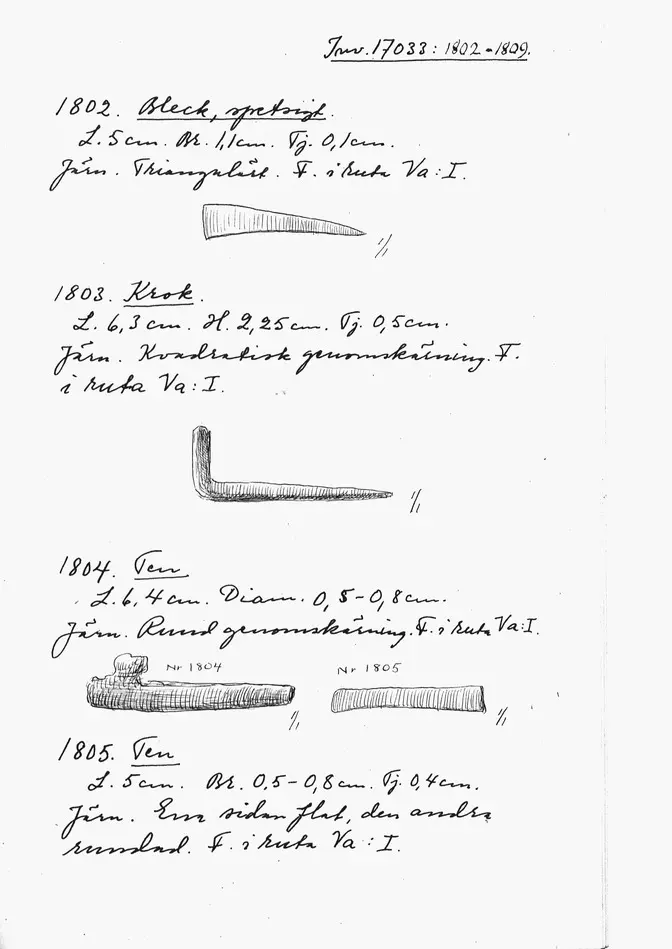 Inv. 17033: 1802-1809.
1802. Bleck, spetsigt.
L. 5 cm. Br. 1,1 cm. Tj. 0,1 cm.
Järn. Triangulärt. F. i ruta Va: I.
1/1
1803. Krok.
L. 6,3 cm. H. 2,25 cm. Tj. 0,5 cm.
Järn. Kvadratisk genomskärning. F.
i ruta Va: I.
1/1
1804. Ten
L. 6,4 cm. Diam. 0,5-0,8 cm.
Järn. Rund genomskärning. F. i ruta Va: I.
Nr 1804 Nr 1805
1/1 1/1
1805. Ten
L. 5 cm. Br. 0,5-0,8 cm. Tj. 0,4 cm.
Järn. Ena sidan flat, den andra
rundad. F. i ruta Va: I.